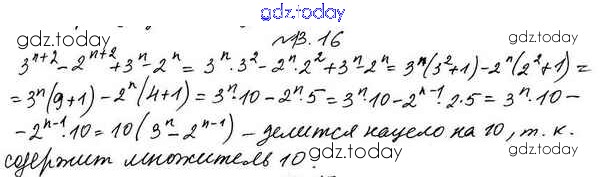 gdz.today
gdz.today №13.16 gdz.today
3^{n+2} - 2^{n+2} + 3^n - 2^n = 3^n · 3^2 - 2^n · 2^2 + 3^n - 2^n = 3^n(3^2+1) - 2^n(2^2+1) =
= 3^n(9+1) - 2^n(4+1) = 3^n · 10 - 2^n · 5 = 3^n · 10 - 2^{n-1} · 2 · 5 = 3^n · 10 -
- 2^{n-1} · 10 = 10(3^n - 2^{n-1}) - делится нацело на 10, т. к.
содержит множитель 10.
gdz.today gdz.today gdz.today